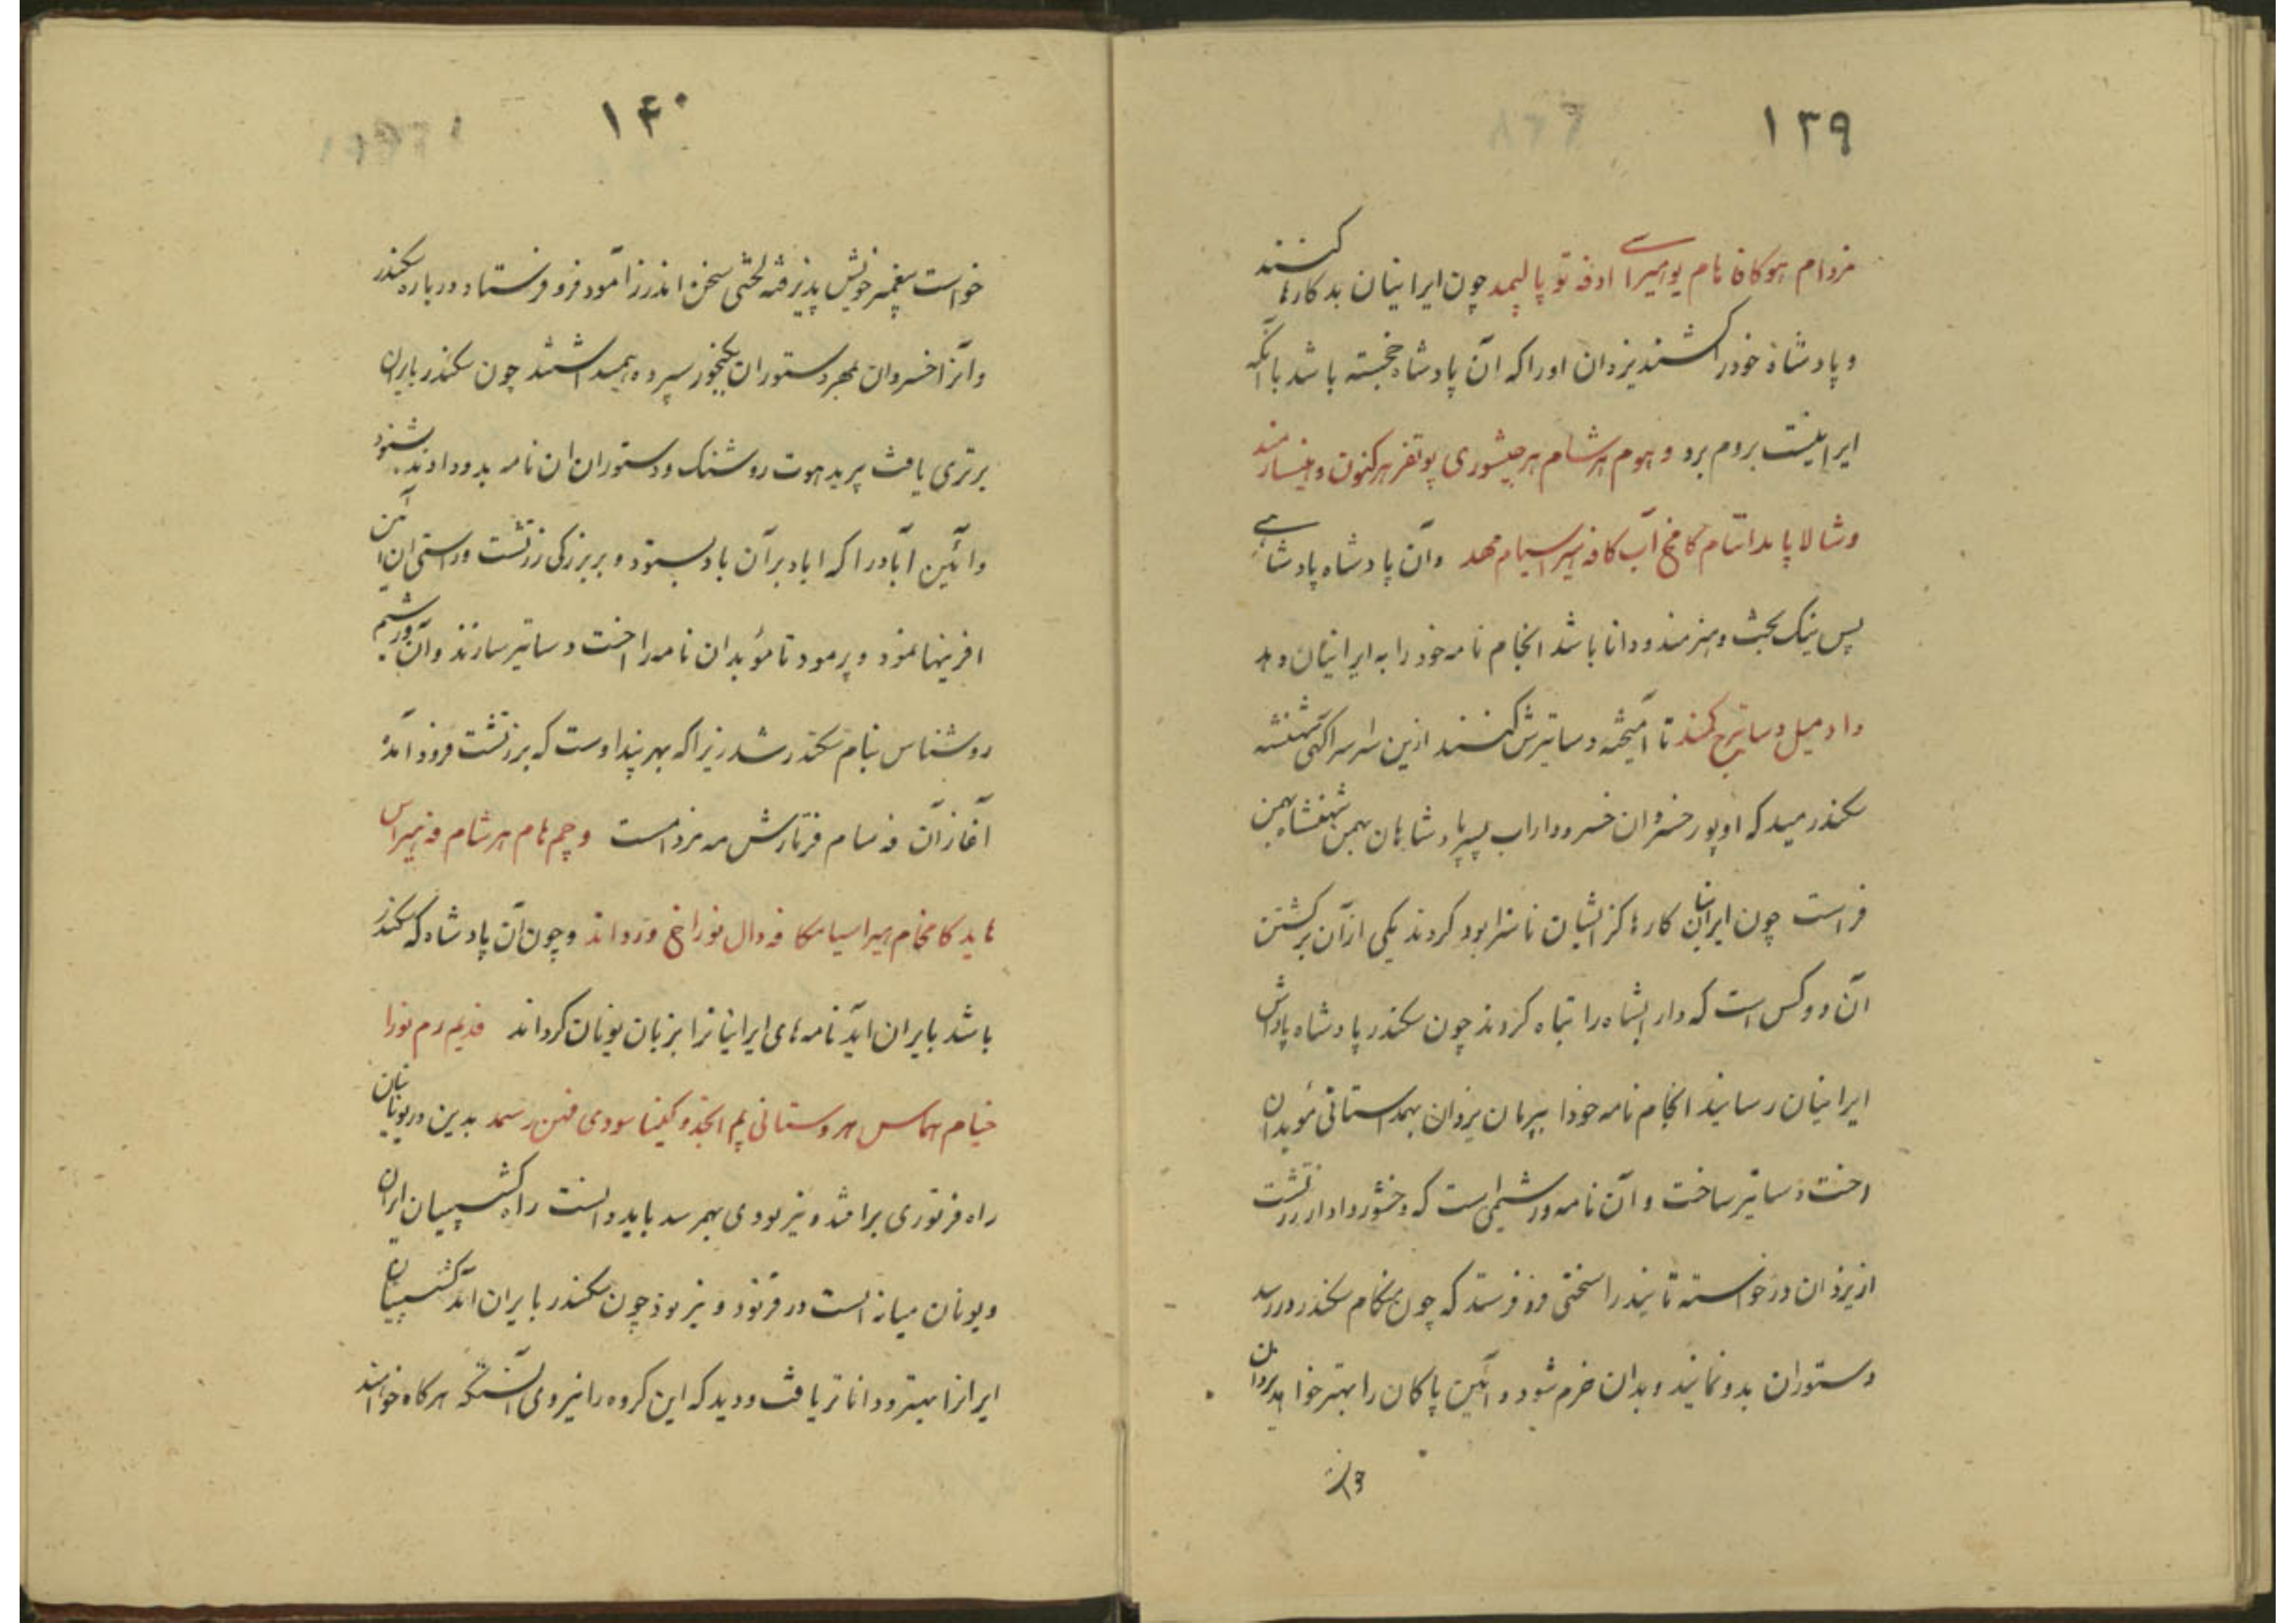 ۱۳۹
مزدام هوکافا نام یو امیراسی ادفه تو پالیمد چون ایرانیان بدکارها کنند
و پادشاه خود را کشند یزدان اورا که آن پادشاه خجسته باشد با آنکه
ایرانیست بروم برد و هیوم هرشام هر جیشوری پوتفر هرکنون و
وشالا پا مداتنام کامخ آب کافه هیراسیام مهد وآن پادشاه پادشاهی
پس نیک بخت و هنرمند و دانا باشد انجام نامه خود را به ایرانیان دهد
داد میل دساتیرخ کنند تا آمیخته دساتیرش کنند ازین سراسر آگهی شهنشه
سکندر میدهد که او پور خسروان خسرو داراب پسر پادشاهان بهمن شهنشاه بهمن
فراست چون ایرانیان کارها کز ایشان ناسزا بود کردند یکی از آن برکشتن
آن دو کس است که دارا بشاه را تباه کردند چون سکندر پادشاه پاداش
ایرانیان رسانید انجام نامه خود را بپرمان یزدان بهمداستانی مؤبدان
اخت دساتیر ساخت و آن نامه ورشیمی است که وخشور دادار زرتشت
از یزدان درخواسته تا پندرا سختی فرو فرستد که چون هنکام سکندر دررسد
دستوران بدو نمایند و بدان خرم شود و آئین پاکان را بهتر خواهد یزدان
۱۴۰
خواست پیغمبر خویش پذیرفته لختی سخن اندرز آمود فرو فرستاد درباره سکندر
و آنرا خسروان بمهر دستوران بگنجور سپرده همیداشتند چون سکندر بایران
برتری یافت پریدهوت روشنک و دستوران ان نامه بدو دادند بشنود
و آئین آباد را که اباد بر آن باد بستود و بر بزرکی زرتشت و راستی ان آئین
افرینها نمود و پرمود تا مؤبدان نامه را اخت دساتیر سازند و آن ورشیم
روشناس بنام سکندر شد زیرا که بهر پند اوست که بر زرتشت فرود آمده
آغاز آن فه سام فرتارش مه مزدمست و چم هام هرشام فه هیراس
هاید کامخام هیراسیامکا فه دال نوراخ ورداند و چون آن پادشاه که سکندر
باشد بایران آید نامه های ایرانیانرا بزبان یونان کرداند فدیم رم نورا
خیام هماس هر وستانی پم انجذ و کیفا سودی فهن رسمد بدین در یونانیان
راه فرتوری برافتد و نیز بودی بهمرسد باید دانست راه کشسپیان ایران
و یونان میانه الست در فرتود و نیز بود چون سکندر بایران آمد کشسپیان
ایرانرا بهتر و داناتر یافت و دید که این کروه را نیروی آنستکه هرکاه خواهند